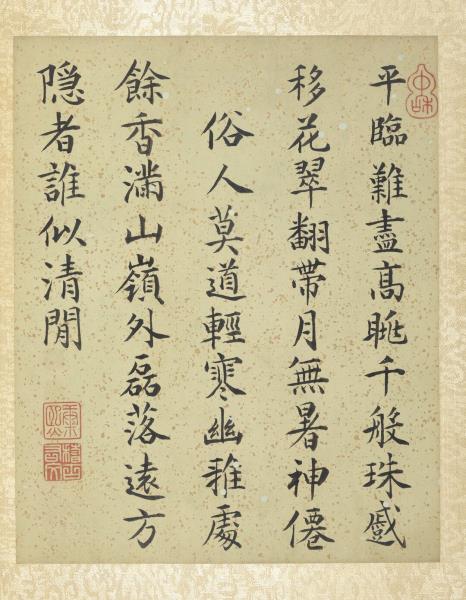 中和
平臨難盡高眺千般珠蹙
移花翠翻帶月無暑神僊
俗人莫道輕寒幽雅處
餘香滿山嶺外磊落遠方
隐者誰似清閒